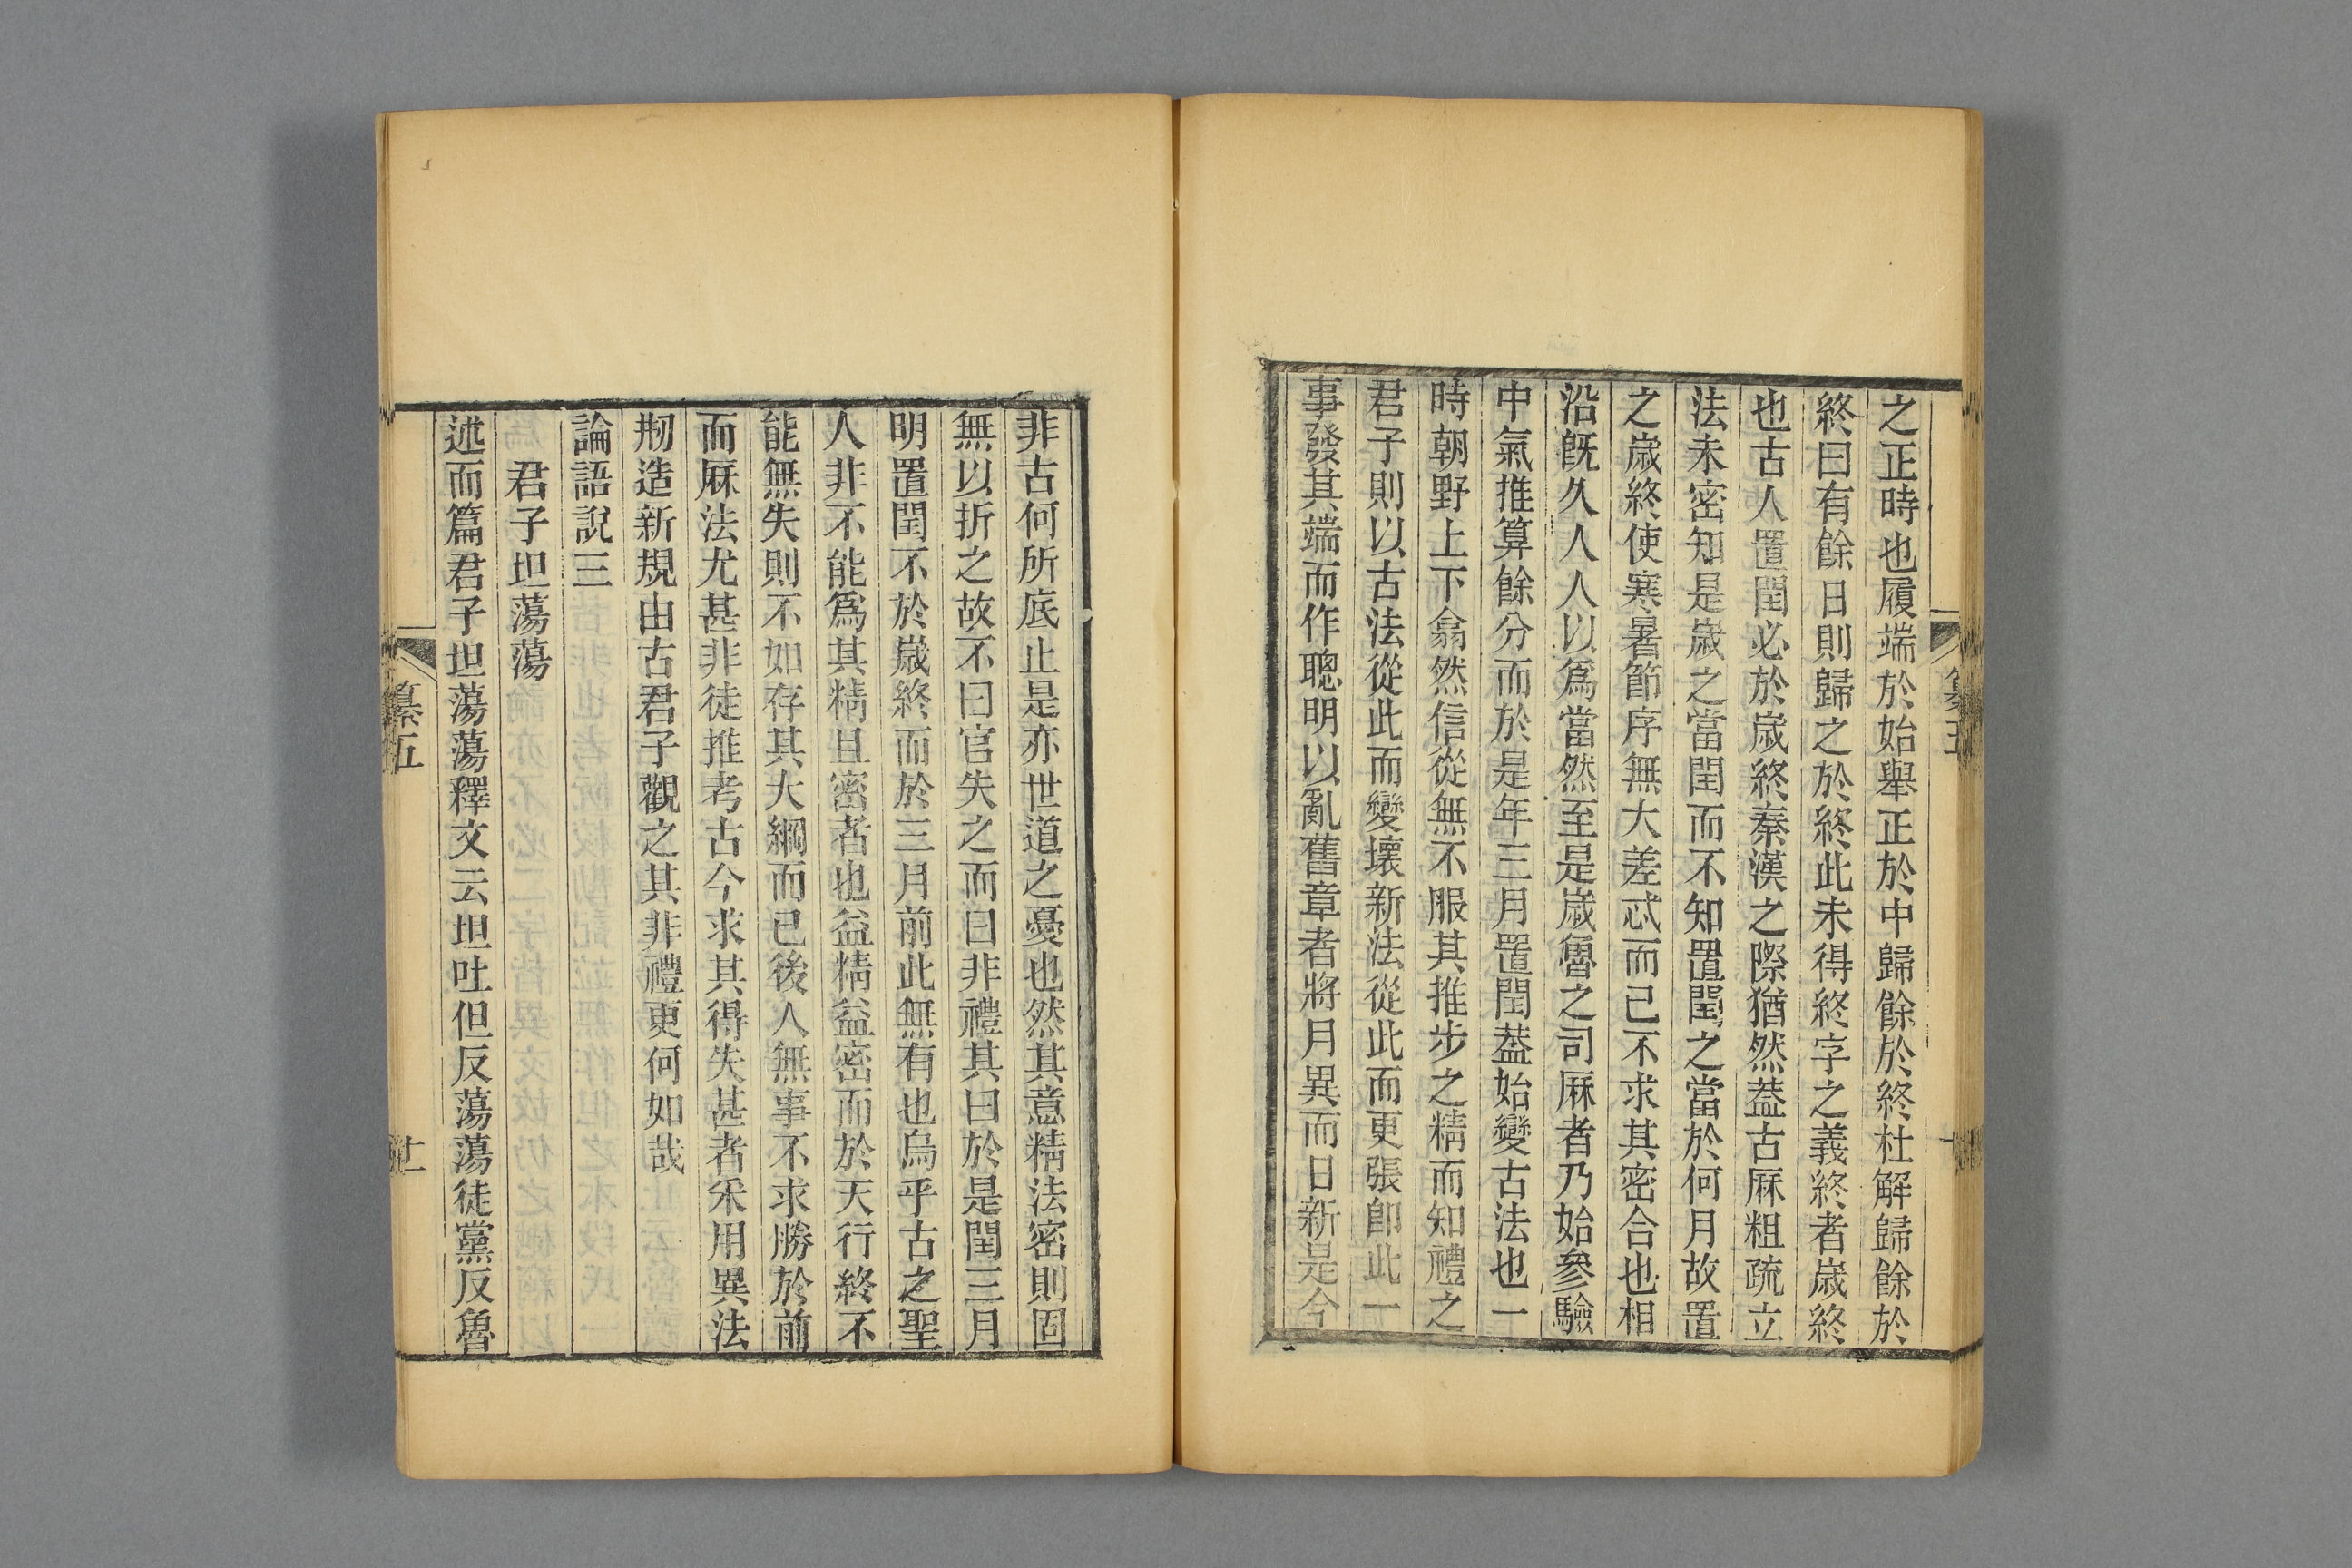 之正時也履端於始舉正於中歸餘於終杜解歸餘於
終曰有餘日則歸之於終此未得終字之義終者歲終
也古人置閏必於歲終秦漢之際猶然葢古厤粗疏立
法未密知是歲之當閏而不知置閏之當於何月故置
之歲終使寒暑節序無大差忒而已不求其密合也相
沿旣久人人以爲當然至是歲魯之司厤者乃始參驗
中氣推算餘分而於是年三月置閏葢始變古法也一
時朝野上下翕然信從無不服其推步之精而知禮之
君子則以古法從此而變壞新法從此而更張卽此一
事發其端而作聰明以亂舊章者將月異而日新是今
非古何所底止是亦世道之憂也然其意精法密則固
無以折之故不曰官失之而曰非禮其曰於是閏三月
明置閏不於歲終而於三月前此無有也烏乎古之聖
人非不能爲其精且密者也益精益密而於天行終不
能無失則不如存其大綱而已後人無事不求勝於前
而厤法尤甚非徒推考古今求其得失甚者采用異法
剏造新規由古君子觀之其非禮更何如哉
論語說三
君子坦蕩蕩
述而篇君子坦蕩蕩釋文云坦吐但反蕩蕩徒黨反魯
纂五